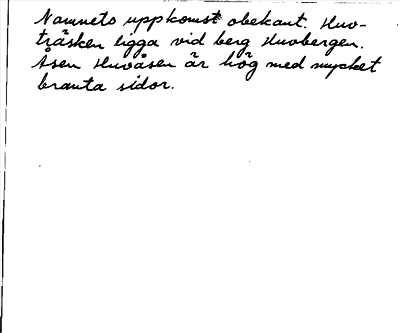 Namnets uppkomst obekant. Huv-
träsken ligga vid berg Huvbergen.
Åsen Huvåsen är hög med mycket
branta sidor.